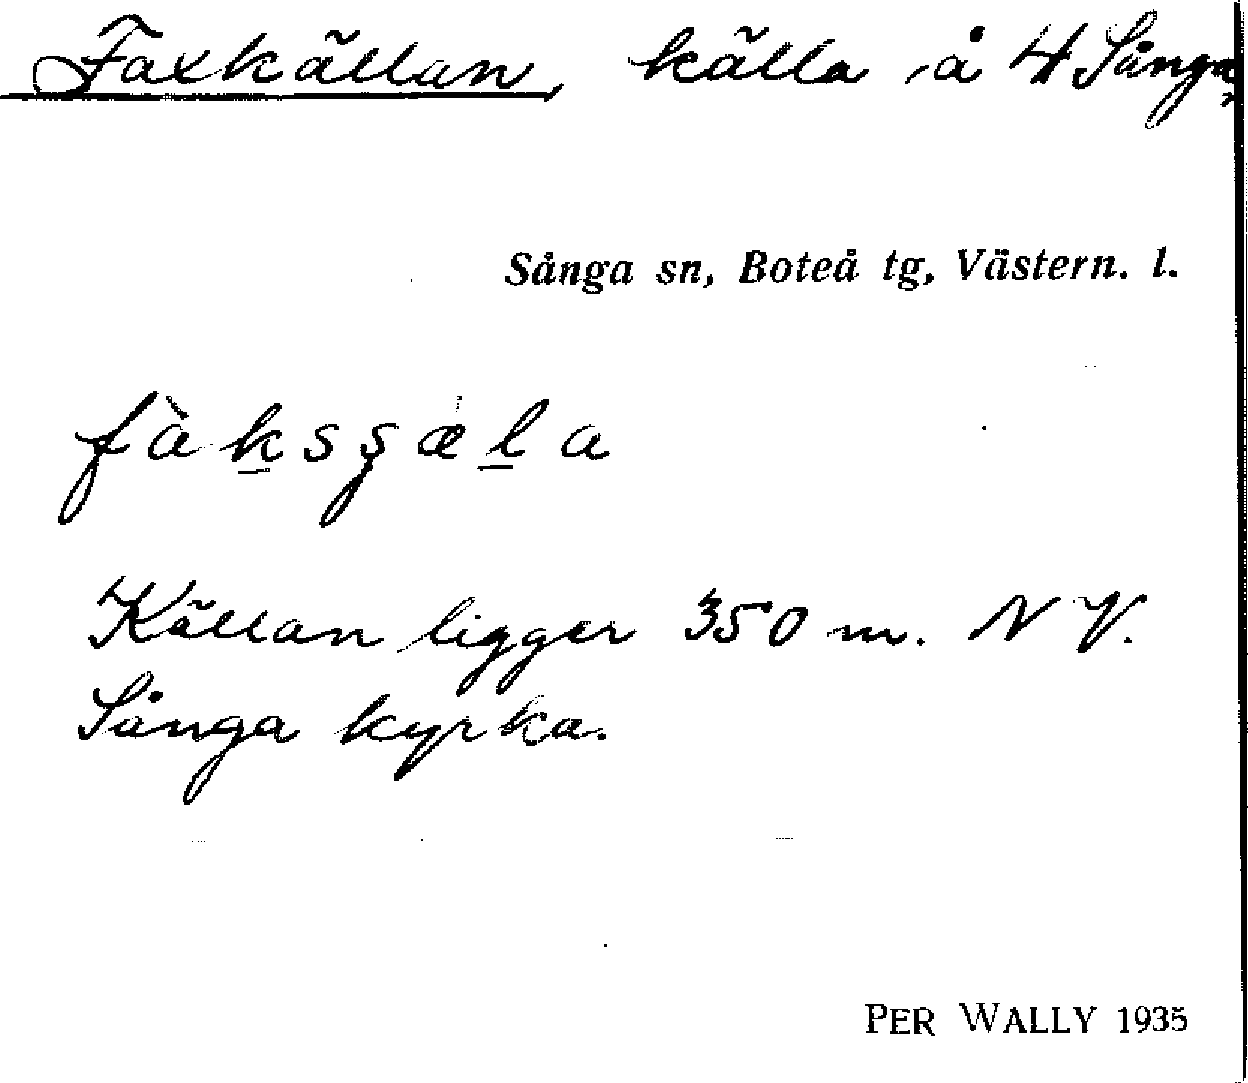 Faxkällan, källa å 4 Sånga
Sånga sn, Boteå tg, Västern. l.
Källan ligger 350 m. N V.
Sånga kyrka.
PER WALLY 1935